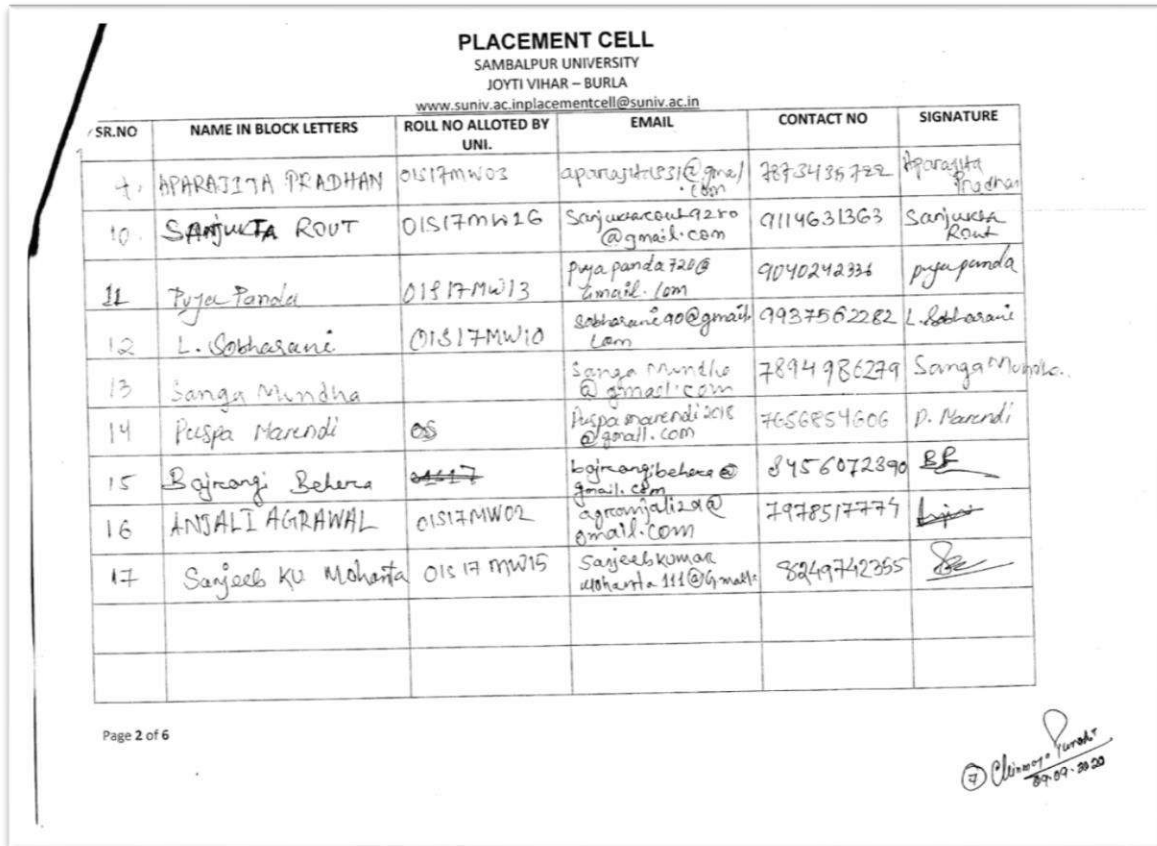 PLACEMENT CELL
SAMBALPUR UNIVERSITY
JOYTI VIHAR – BURLA
www.suniv.ac.inplacementcell@suniv.ac.in
SR.NO NAME IN BLOCK LETTERS ROLL NO ALLOTED BY UNI. EMAIL CONTACT NO SIGNATURE
APARAJITA PRADHAN 01S17MW03 7873435722 Aparajita Pradhan
10. SANJUKTA ROUT 01S17MW16 @gmail.com 9114631363 Sanjukta Rout
11 Puja Panda 01S17MW13 pujapanda720@ Gmail.com 9040242336 pujapanda
12 L. Sobharani 01S17MW10 sobharani90@gmail. com 9937562282 L. Sobharani
13 Sanga Mundha Sanga Mundha @gmail.com 7894986279 Sanga Mundha.
14 Puspa Marendi OS Puspamarendi2018 @gmail.com 7656854606 P. Marendi
15 Bajrangi Behera bajrangibehera@ gmail.com 8456072390
16 ANJALI AGRAWAL 01S17MW02 gmail.com 7978517774
17 Sanjeeb KU Mohanta 01S17MW15 Sanjeebkumar Mohanta111@Gmail. 8249742355
Page 2 of 6
7
09-09-2020